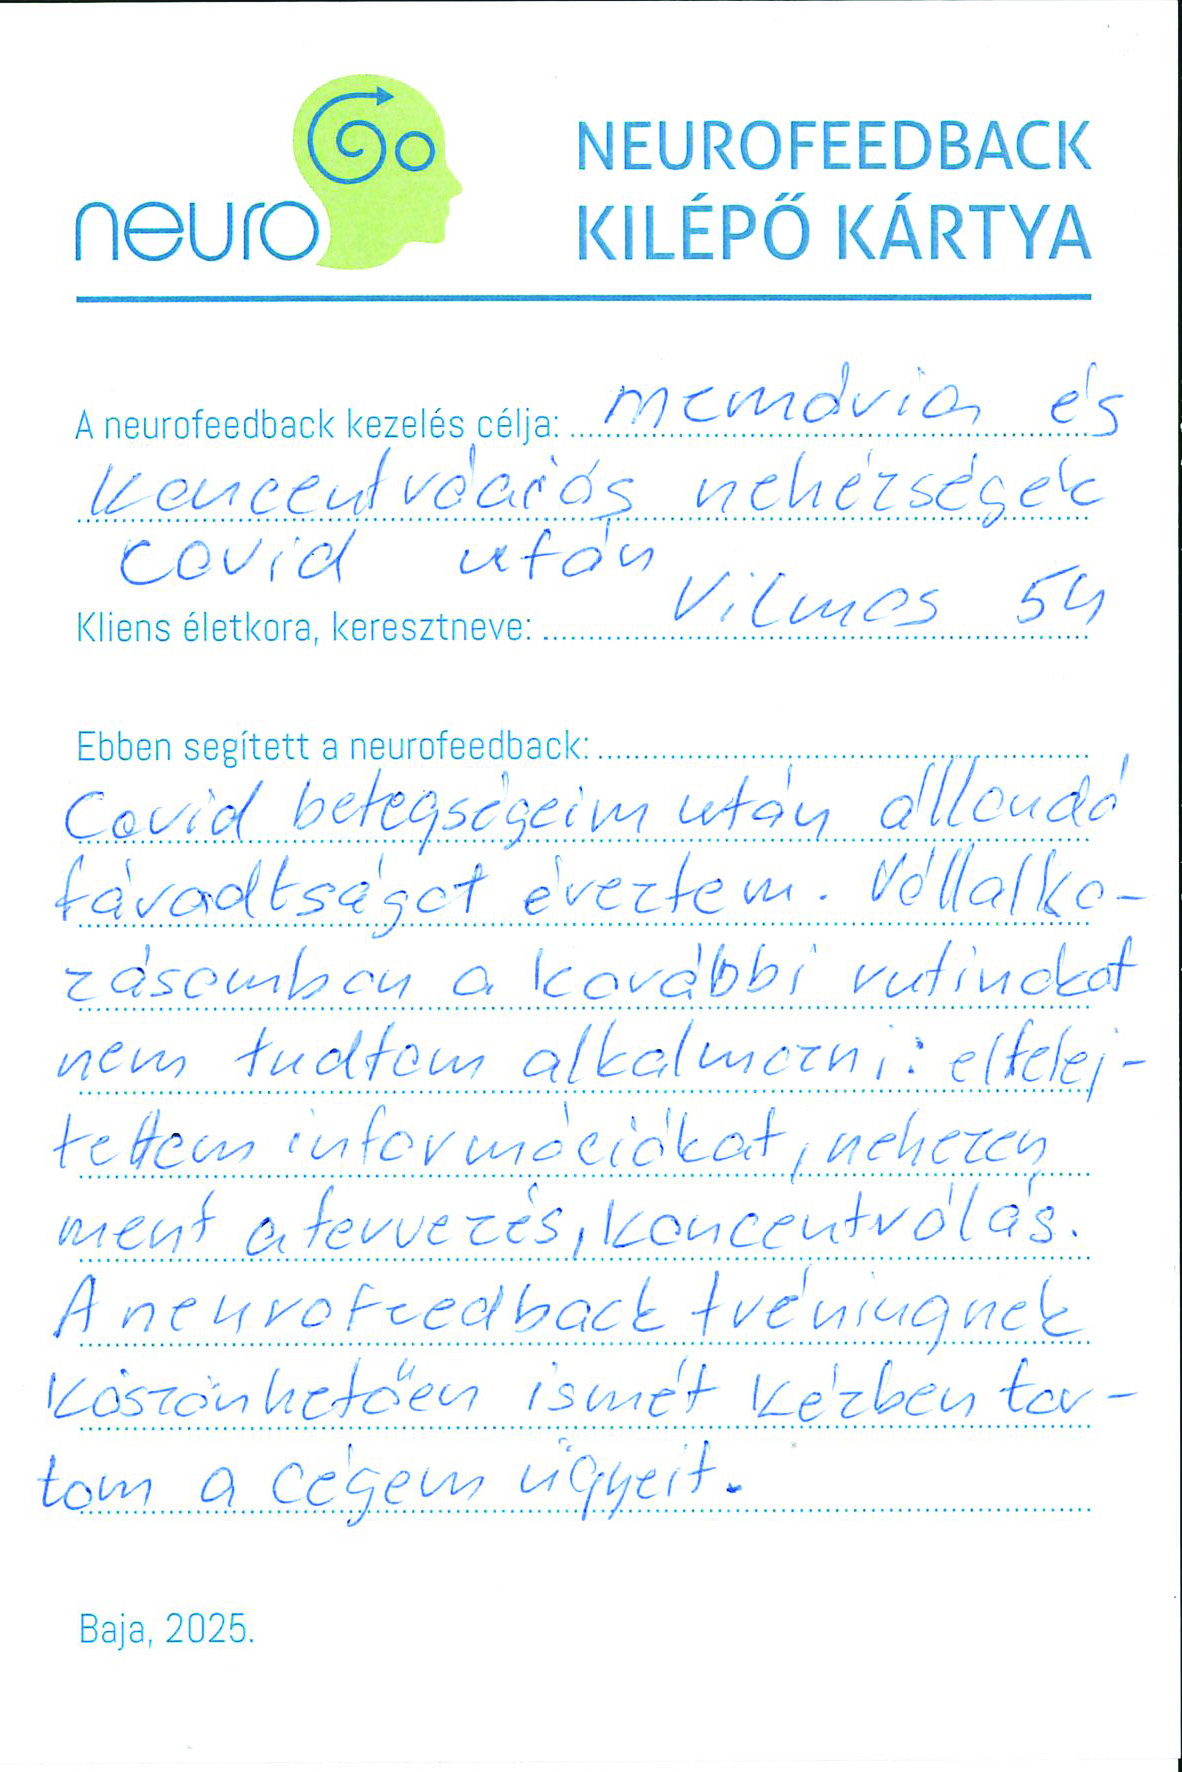 neuro Go
NEUROFEEDBACK
KILÉPŐ KÁRTYA
A neurofeedback kezelés célja: memória és
koncentrációs nehézségek
covid után
Kliens életkora, keresztneve: Vilmos 54
Ebben segített a neurofeedback:
Covid betegségeim után állandó
fáradtságot éreztem. Vállalko-
zásomban a korábbi rutinokat
nem tudtam alkalmazni: elfelej-
tettem információkat, nehezen
ment a tervezés, koncentrálás.
A neurofeedback tréningnek
köszönhetően ismét kézben tar-
tom a cégem ügyeit.
Baja, 2025.